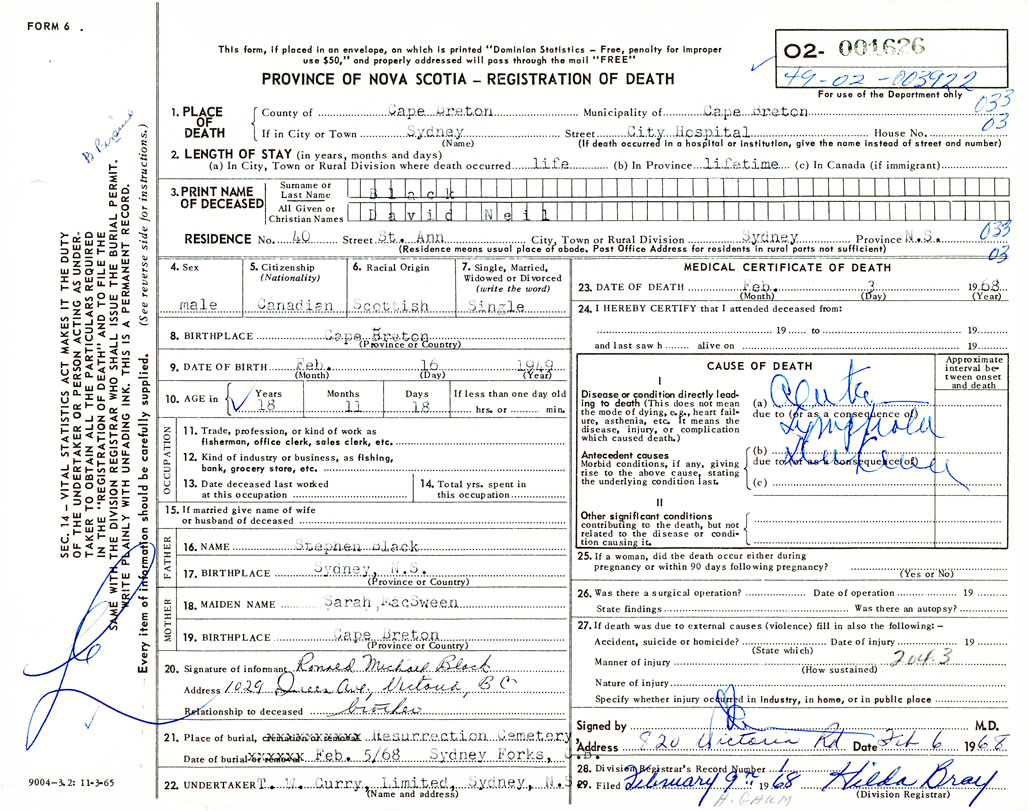 FORM 6 .
This form, if placed in an envelope, on which is printed "Dominion Statistics – Free, penalty for improper
use $50," and properly addressed will pass through the mail "FREE"
PROVINCE OF NOVA SCOTIA – REGISTRATION OF DEATH
O2- 001626
49-02-003922
For use of the Department only
033
03
SEC. 14 – VITAL STATISTICS ACT MAKES IT THE DUTY
OF THE UNDERTAKER OR PERSON ACTING AS UNDER-
TAKER TO OBTAIN ALL THE PARTICULARS REQUIRED
IN THE "REGISTRATION OF DEATH" AND TO FILE THE
SAME WITH THE DIVISION REGISTRAR WHO SHALL ISSUE THE BURIAL PERMIT.
WRITE PLAINLY WITH UNFADING INK. THIS IS A PERMANENT RECORD.
Every item of information should be carefully supplied. (See reverse side for instructions.)
1. PLACE OF DEATH
County of Cape Breton Municipality of Cape Breton
If in City or Town Sydney Street City Hospital House No.
(Name) (If death occurred in a hospital or institution, give the name instead of street and number)
2. LENGTH OF STAY (in years, months and days)
(a) In City, Town or Rural Division where death occurred life (b) In Province lifetime (c) In Canada (if immigrant)
3. PRINT NAME OF DECEASED
Surname or Last Name Black
All Given or Christian Names David Neil
RESIDENCE No. 40 Street St. Ann City, Town or Rural Division Sydney Province N.S.
(Residence means usual place of abode. Post Office Address for residents in rural parts not sufficient)
033
03
4. Sex
male
5. Citizenship (Nationality)
Canadian
6. Racial Origin
Scottish
7. Single, Married, Widowed or Divorced (write the word)
Single
8. BIRTHPLACE Cape Breton
(Province or Country)
9. DATE OF BIRTH Feb. 16 1949
(Month) (Day) (Year)
10. AGE in Years Months Days If less than one day old
18 11 18 hrs. or min.
OCCUPATION
11. Trade, profession, or kind of work as
fisherman, office clerk, sales clerk, etc.
12. Kind of industry or business, as fishing,
bank, grocery store, etc.
13. Date deceased last worked
at this occupation
14. Total yrs. spent in
this occupation
15. If married give name of wife
or husband of deceased
FATHER
16. NAME Stephen Black
17. BIRTHPLACE Sydney, N.S.
(Province or Country)
MOTHER
18. MAIDEN NAME Sarah MacSween
19. BIRTHPLACE Cape Breton
(Province or Country)
20. Signature of informant Ronald Michael Black
Address 1029 Queens Ave, Victoria, BC
Relationship to deceased brother
21. Place of burial, cremation or removal Resurrection Cemetery,
Date of burial or removal Feb. 5/68 Sydney Forks,
22. UNDERTAKER T. W. Curry, Limited, Sydney, N.S.
(Name and address)
9004–3.2: 11-3-65
MEDICAL CERTIFICATE OF DEATH
23. DATE OF DEATH Feb. 3 1968
(Month) (Day) (Year)
24. I HEREBY CERTIFY that I attended deceased from:
19 to 19
and last saw h alive on 19
CAUSE OF DEATH
Approximate interval be-tween onset and death
I
Disease or condition directly lead-
ing to death (This does not mean
the mode of dying, e.g., heart fail-
ure, asthenia, etc. It means the
disease, injury, or complication
which caused death.)
(a) Acute
due to (or as a consequence of)
Antecedent causes
Morbid conditions, if any, giving
rise to the above cause, stating
the underlying condition last.
(b)
due to (or as a consequence of)
(c)
II
Other significant conditions
contributing to the death, but not
related to the disease or condi-
tion causing it.
25. If a woman, did the death occur either during
pregnancy or within 90 days following pregnancy?
(Yes or No)
26. Was there a surgical operation? Date of operation 19
State findings Was there an autopsy?
27. If death was due to external causes (violence) fill in also the following: –
Accident, suicide or homicide? Date of injury 19
(State which)
204.3
Manner of injury
(How sustained)
Nature of injury
Specify whether injury occurred in industry, in home, or in public place
Signed by M.D.
Address 920 Victoria Rd Date Feb 6 1968
28. Division Registrar's Record Number
29. Filed February 9th 1968 Hilda Bray
(Division Registrar)